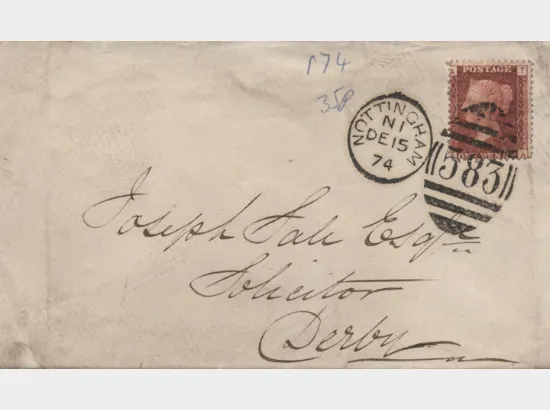 P74
35p
POSTAGE
NOTTINGHAM
N1
DE15
74
583
Joseph Sale Esqre
Solicitor
Derby